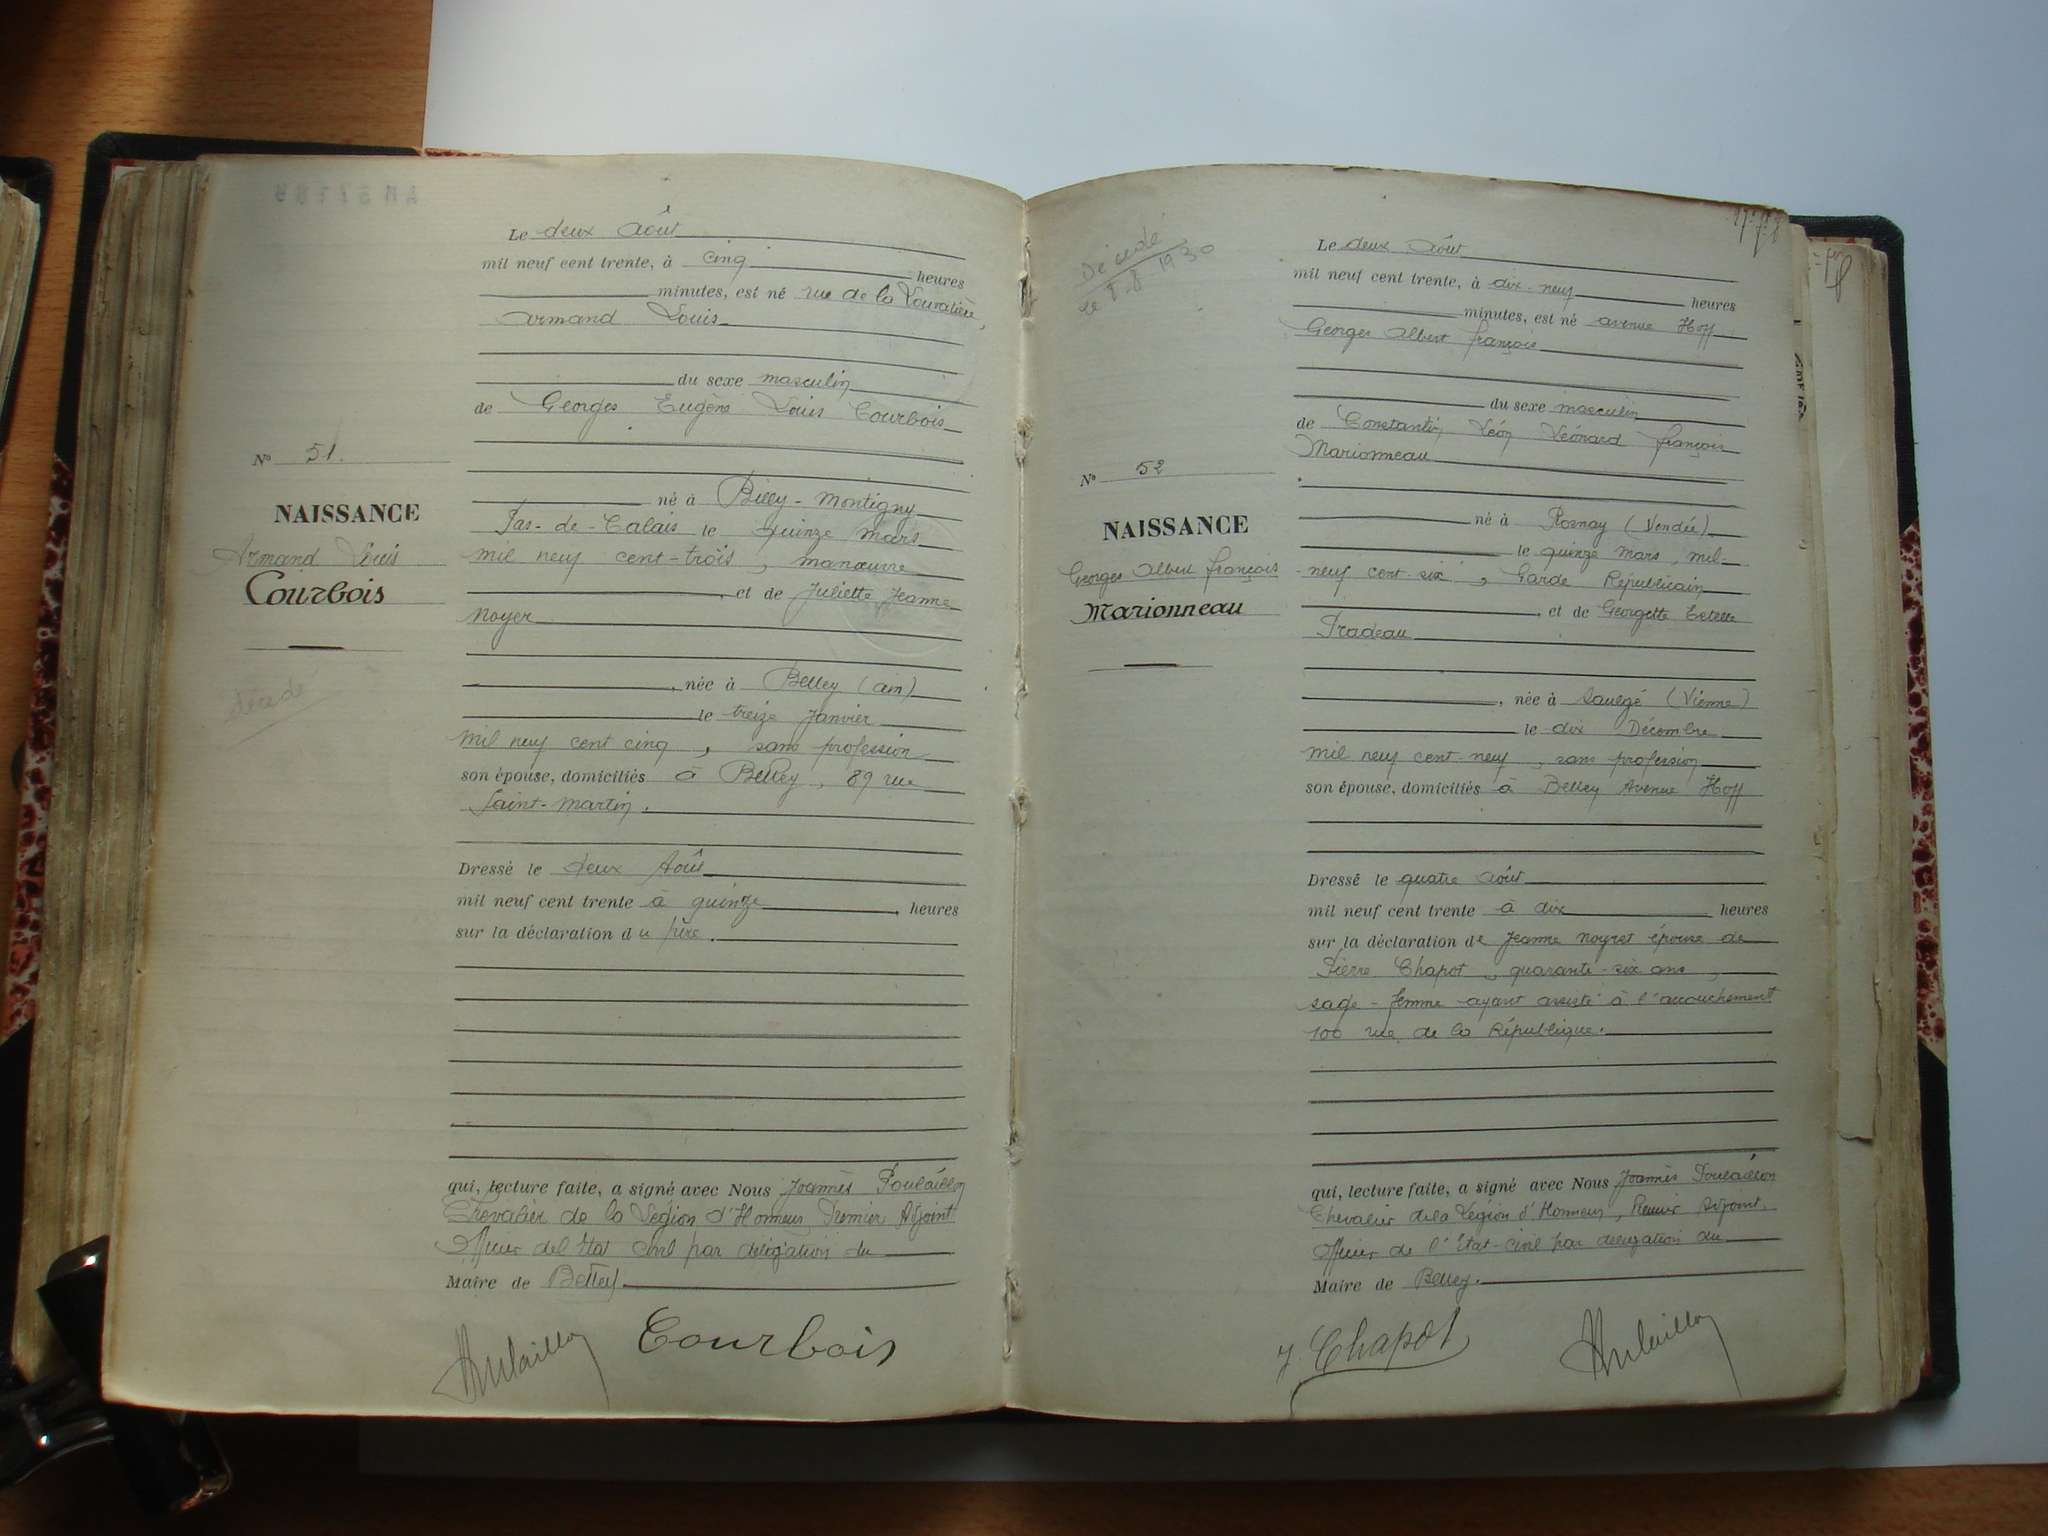 Le deux Août
mil neuf cent trente, à cinq heures
minutes, est né rue de la Louvatière,
Armand Louis
du sexe masculin
de Georges Eugène Louis Courbois
N° 51.
NAISSANCE
Armand Louis
Courbois
décédé
né à Billy-Montigny
Pas-de-Calais le quinze Mars
mil neuf cent-trois, manœuvre
, et de Juliette Jeanne
Noyer
, née à Belley (ain)
le treize Janvier
mil neuf cent cinq, sans profession
son épouse, domiciliés à Belley, 89 rue
Saint-Martin.
Dressé le deux Août
mil neuf cent trente à quinze, heures
sur la déclaration du père.
qui, lecture faite, a signé avec Nous Joannès Poulaillon
Chevalier de la Légion d'Honneur Premier Adjoint
Officier de l'Etat civil par délégation du
Maire de Belley.
Courbois
Décédé
le 8.8.1930
Le deux Août
mil neuf cent trente, à dix-neuf heures
minutes, est né avenue Hoff
Georges Albert françois
du sexe masculin
de Constantin Léon Léonard françois
Marionneau
N° 52
NAISSANCE
Georges Albert françois
Marionneau
né à Rosnay (Vendée)
le quinze mars, mil
neuf cent-six, Garde Républicain
, et de Georgette Estelle
Pradeau
, née à Saulgé (Vienne)
le dix Décembre
mil neuf cent-neuf, sans profession
son épouse, domiciliés à Belley Avenue Hoff
Dressé le quatre août
mil neuf cent trente à dix heures
sur la déclaration de Jeanne Noyret épouse de
Pierre Chapot, quarante-six ans,
sage-femme ayant assisté à l'accouchement
100 rue de la République.
qui, lecture faite, a signé avec Nous Joannès Poulaillon
Chevalier de la Légion d'Honneur, Premier Adjoint,
officier de l'Etat-civil par délégation du
Maire de Belley.
J. Chapot